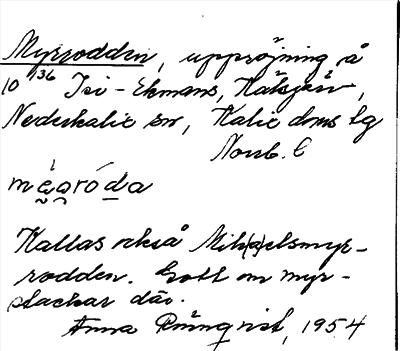 Myrrodden, uppröjning å
10 136 Isi-Ekmans, Hätsjärv,
Nederkalix sn, Kalix doms. lg
Norrb. l
Kallas också Mik(a)elsmyr-
rodden. Gott om myr-
stackar där.
Anna Rönnqvist, 1954